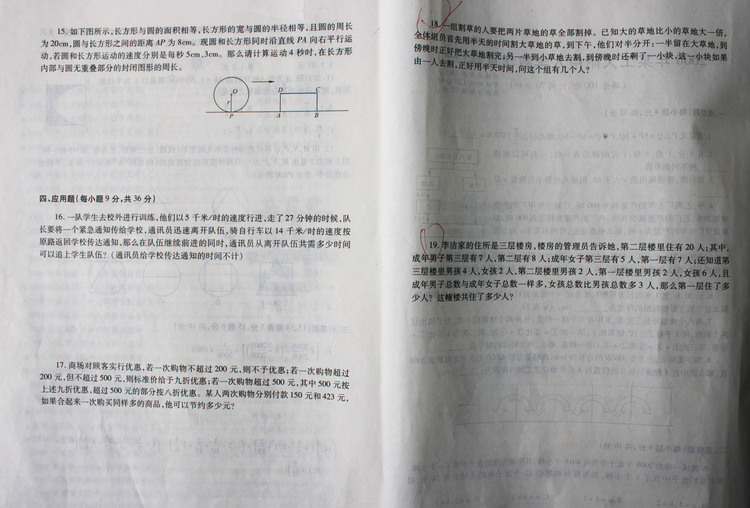 15. 如下图所示,长方形与圆的面积相等,长方形的宽与圆的半径相等,且圆的周长
为 20cm,圆与长方形之间的距离 AP 为 8cm。现圆和长方形同时沿直线 PA 向右平行运
动,若圆和长方形运动的速度分别是每秒 5cm,3cm。那么请计算运动 4 秒时,在长方形
内部与圆无重叠部分的封闭图形的周长。
O
r
P
D
C
A
B
四、应用题(每小题 9 分,共 36 分)
16. 一队学生去校外进行训练,他们以 5 千米/时的速度行进,走了 27 分钟的时候,队
长要将一个紧急通知传给学校,通讯员迅速离开队伍,骑自行车以 14 千米/时的速度按
原路返回学校传达通知,那么在队伍继续前进的同时,通讯员从离开队伍共需多少时间
可以追上学生队伍?(通讯员给学校传达通知的时间不计)
17. 商场对顾客实行优惠,若一次购物不超过 200 元,则不予优惠;若一次购物超过
200 元,但不超过 500 元,则标准价给予九折优惠;若一次购物超过 500 元,其中 500 元按
上述九折优惠,超过 500 元的部分按八折优惠。某人两次购物分别付款 150 元和 423 元,
如果合起来一次购买同样多的商品,他可以节约多少元?
18. 一组割草的人要把两片草地的草全部割掉。已知大的草地比小的草地大一倍,
全体组员首先用半天的时间割大草地的草,到下午,他们对半分开:一半留在大草地,到
傍晚时正好把大草地割完;另一半到小草地去割,到傍晚时还剩了一小块,这一小块如果
由一人去割,正好用半天时间,问这个组有几个人?
19. 李洁家的住所是三层楼房,楼房的管理员告诉她,第二层楼里住有 20 人;其中,
成年男子第三层有 7 人,第二层有 8 人;成年女子第三层有 5 人,第一层有 7 人;还知道第
三层楼里男孩 4 人,女孩 2 人,第二层楼里男孩 2 人,第一层楼里男孩 2 人,女孩 6 人,且
成年男子总数与成年女子总数一样多,女孩总数比男孩总数多 3 人,那么第一层住了多
少人?这幢楼共住了多少人?